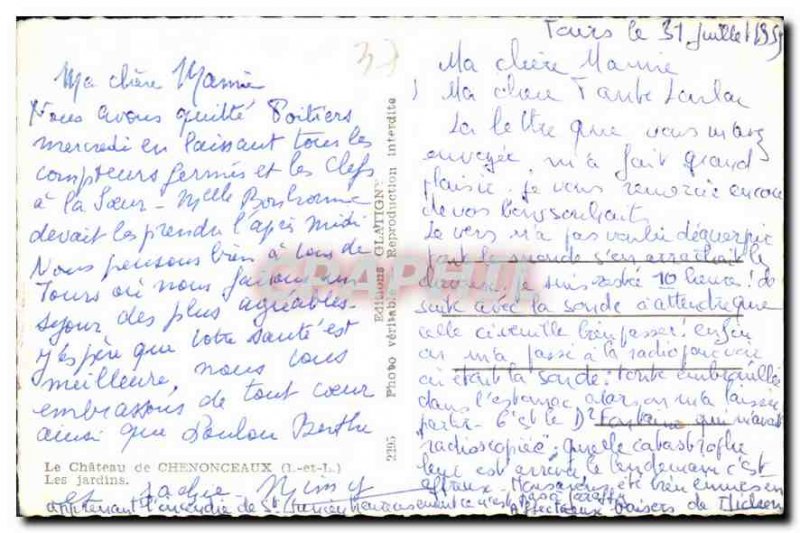 Ma chère Mamie
Nous avons quitté Poitiers
mercredi en laissant tous les
compteurs fermés et les clefs
à la Sœur - Melle Bonhomme
devait les prendre l'après midi
Nous pensons bien à vous de
Tours où nous faisons un
séjour des plus agréables.
J'espère que votre santé est
meilleure, nous vous
embrassons de tout cœur
ainsi que Berthe
Le Château de CHENONCEAUX (I.-et-L.)
Les jardins.
2295 Photo véritable Reproduction interdite
Editions GLATIGNY
CRAPHIL
Tours le 31 juillet 195
Ma chère Mamie
Ma chère Tante
La lettre que vous m'avez
envoyée, m'a fait grand
plaisir. je vous remercie encore
de vos bons souhaits
Le vers n'a pas voulu déguerpir
tout le monde s'en arrachait le
je suis restée 10 heures! de
suite avec la sonde à attendre que
elle veuille bien passer! enfin
on m'a passé à la radio pour voir
où était la sonde: toute embrouillée
dans l'estomac alors on m'a laissée
partir. C'est le Dr qui m'avait
"radioscopiée". Quelle catastrophe
leur est arrivée le lendemain c'est
affreux. été bien ennuyés en
apprenant l'incendie de St heureusement ce n'est pas
Affectueux baisers de